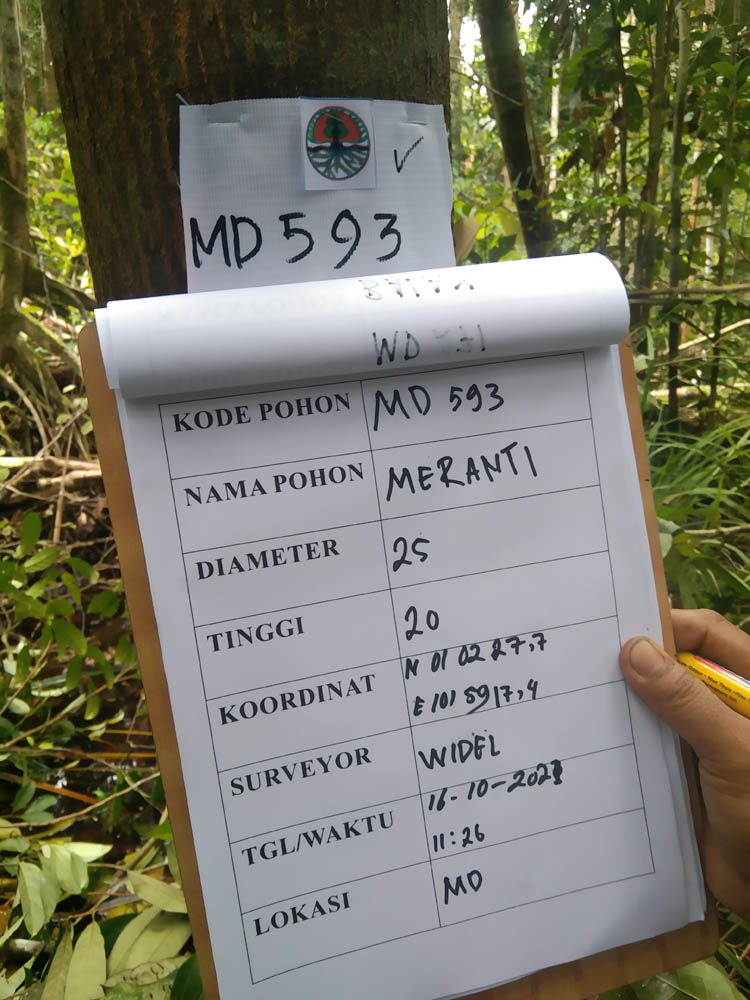 MD 593
KODE POHON MD 593
NAMA POHON MERANTI
DIAMETER 25
TINGGI 20
KOORDINAT N 01 02 27,7
E 101 59 17,4
SURVEYOR WIDEL
TGL/WAKTU 16-10-2021
11:26
LOKASI MD